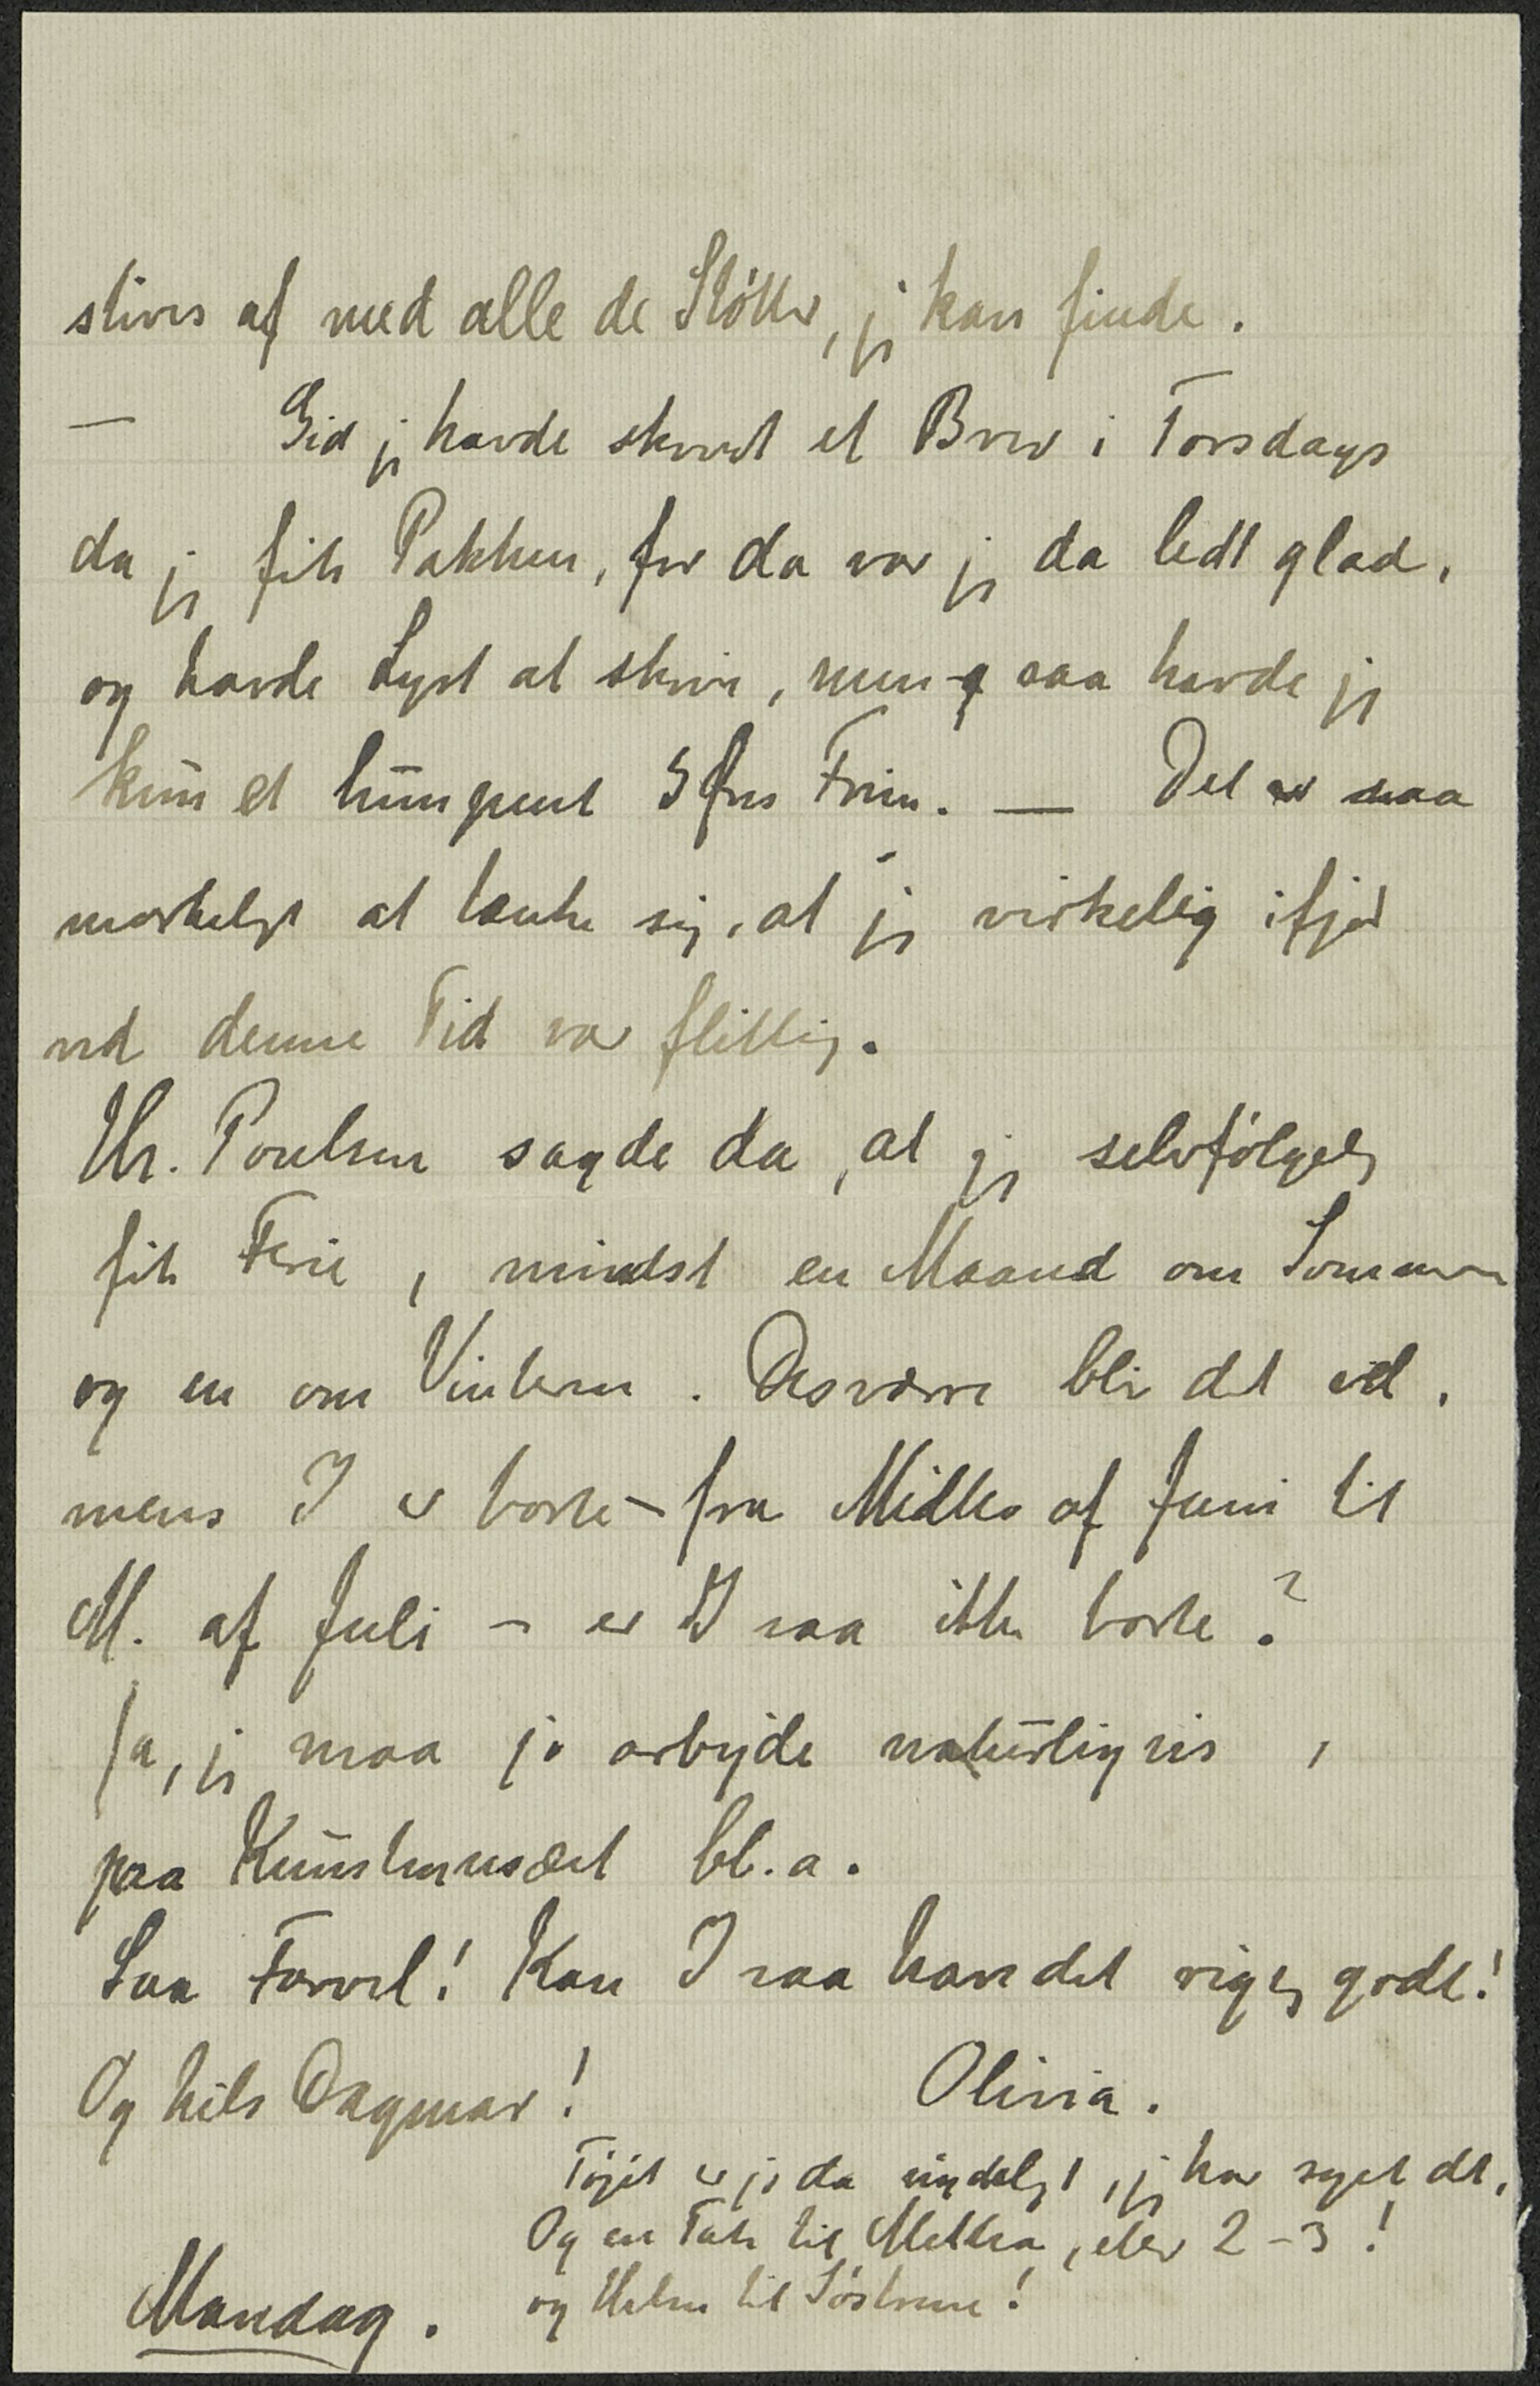 stives af med alle de Støtter, jeg kan finde.
— Gid jeg havde skrevet et Brev i Torsdags
da jeg fik Pakken, for da var jeg da lidt glad,
og havde Lyst at skrive, men saa havde jeg
kun et lumpent 5 Øres Frim. — Det er saa
mærkeligt at tænke sig, at jeg virkelig ifjor
ved denne Tid var flittig.
Hr. Poulsen sagde da, at jeg selvfølgelig
fik Ferie, mindst en Maaned om Sommeren
og en om Vinteren. Desværre blir det vel,
mens I er borte – fra Midten af Juni til
M. af Juli – er I saa ikke borte?
Ja, jeg maa jo arbejde naturligvis,
paa Kunstmusæet bl.a.
Saa Farvel! Kan I saa have det rigtig godt!
Og hils Dagmar! Olivia.
Tøjet er jo da yndeligt, jeg har syet det,
Og en Tak til Mettea, eller 2-3!
og Hilsen til Søstrene!
Mandag.